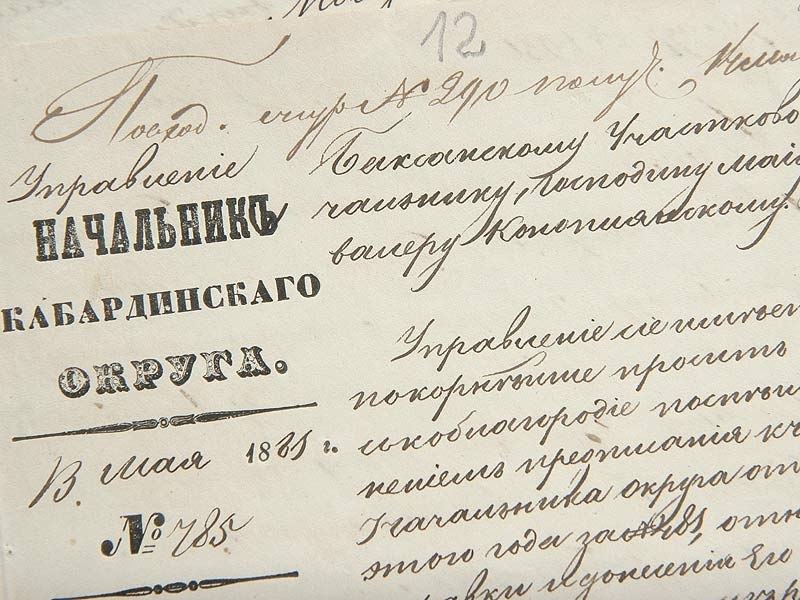 12
Поход. имур № 290 получ.
Управленіе
НАЧАЛЬНИКЪ
КАБАРДИНСКАГО
ОКРУГА.
13 Мая
№ 785
Баксанскому Участково
чальнику, Господину маі
валеру Конопиянскому.
Управленіе сіе
покорнѣйше проситъ
ысокоблагородіе поспѣш
неніемъ предписанія
Начальника округа от
этого года за № 281, отн
и донесенія Его